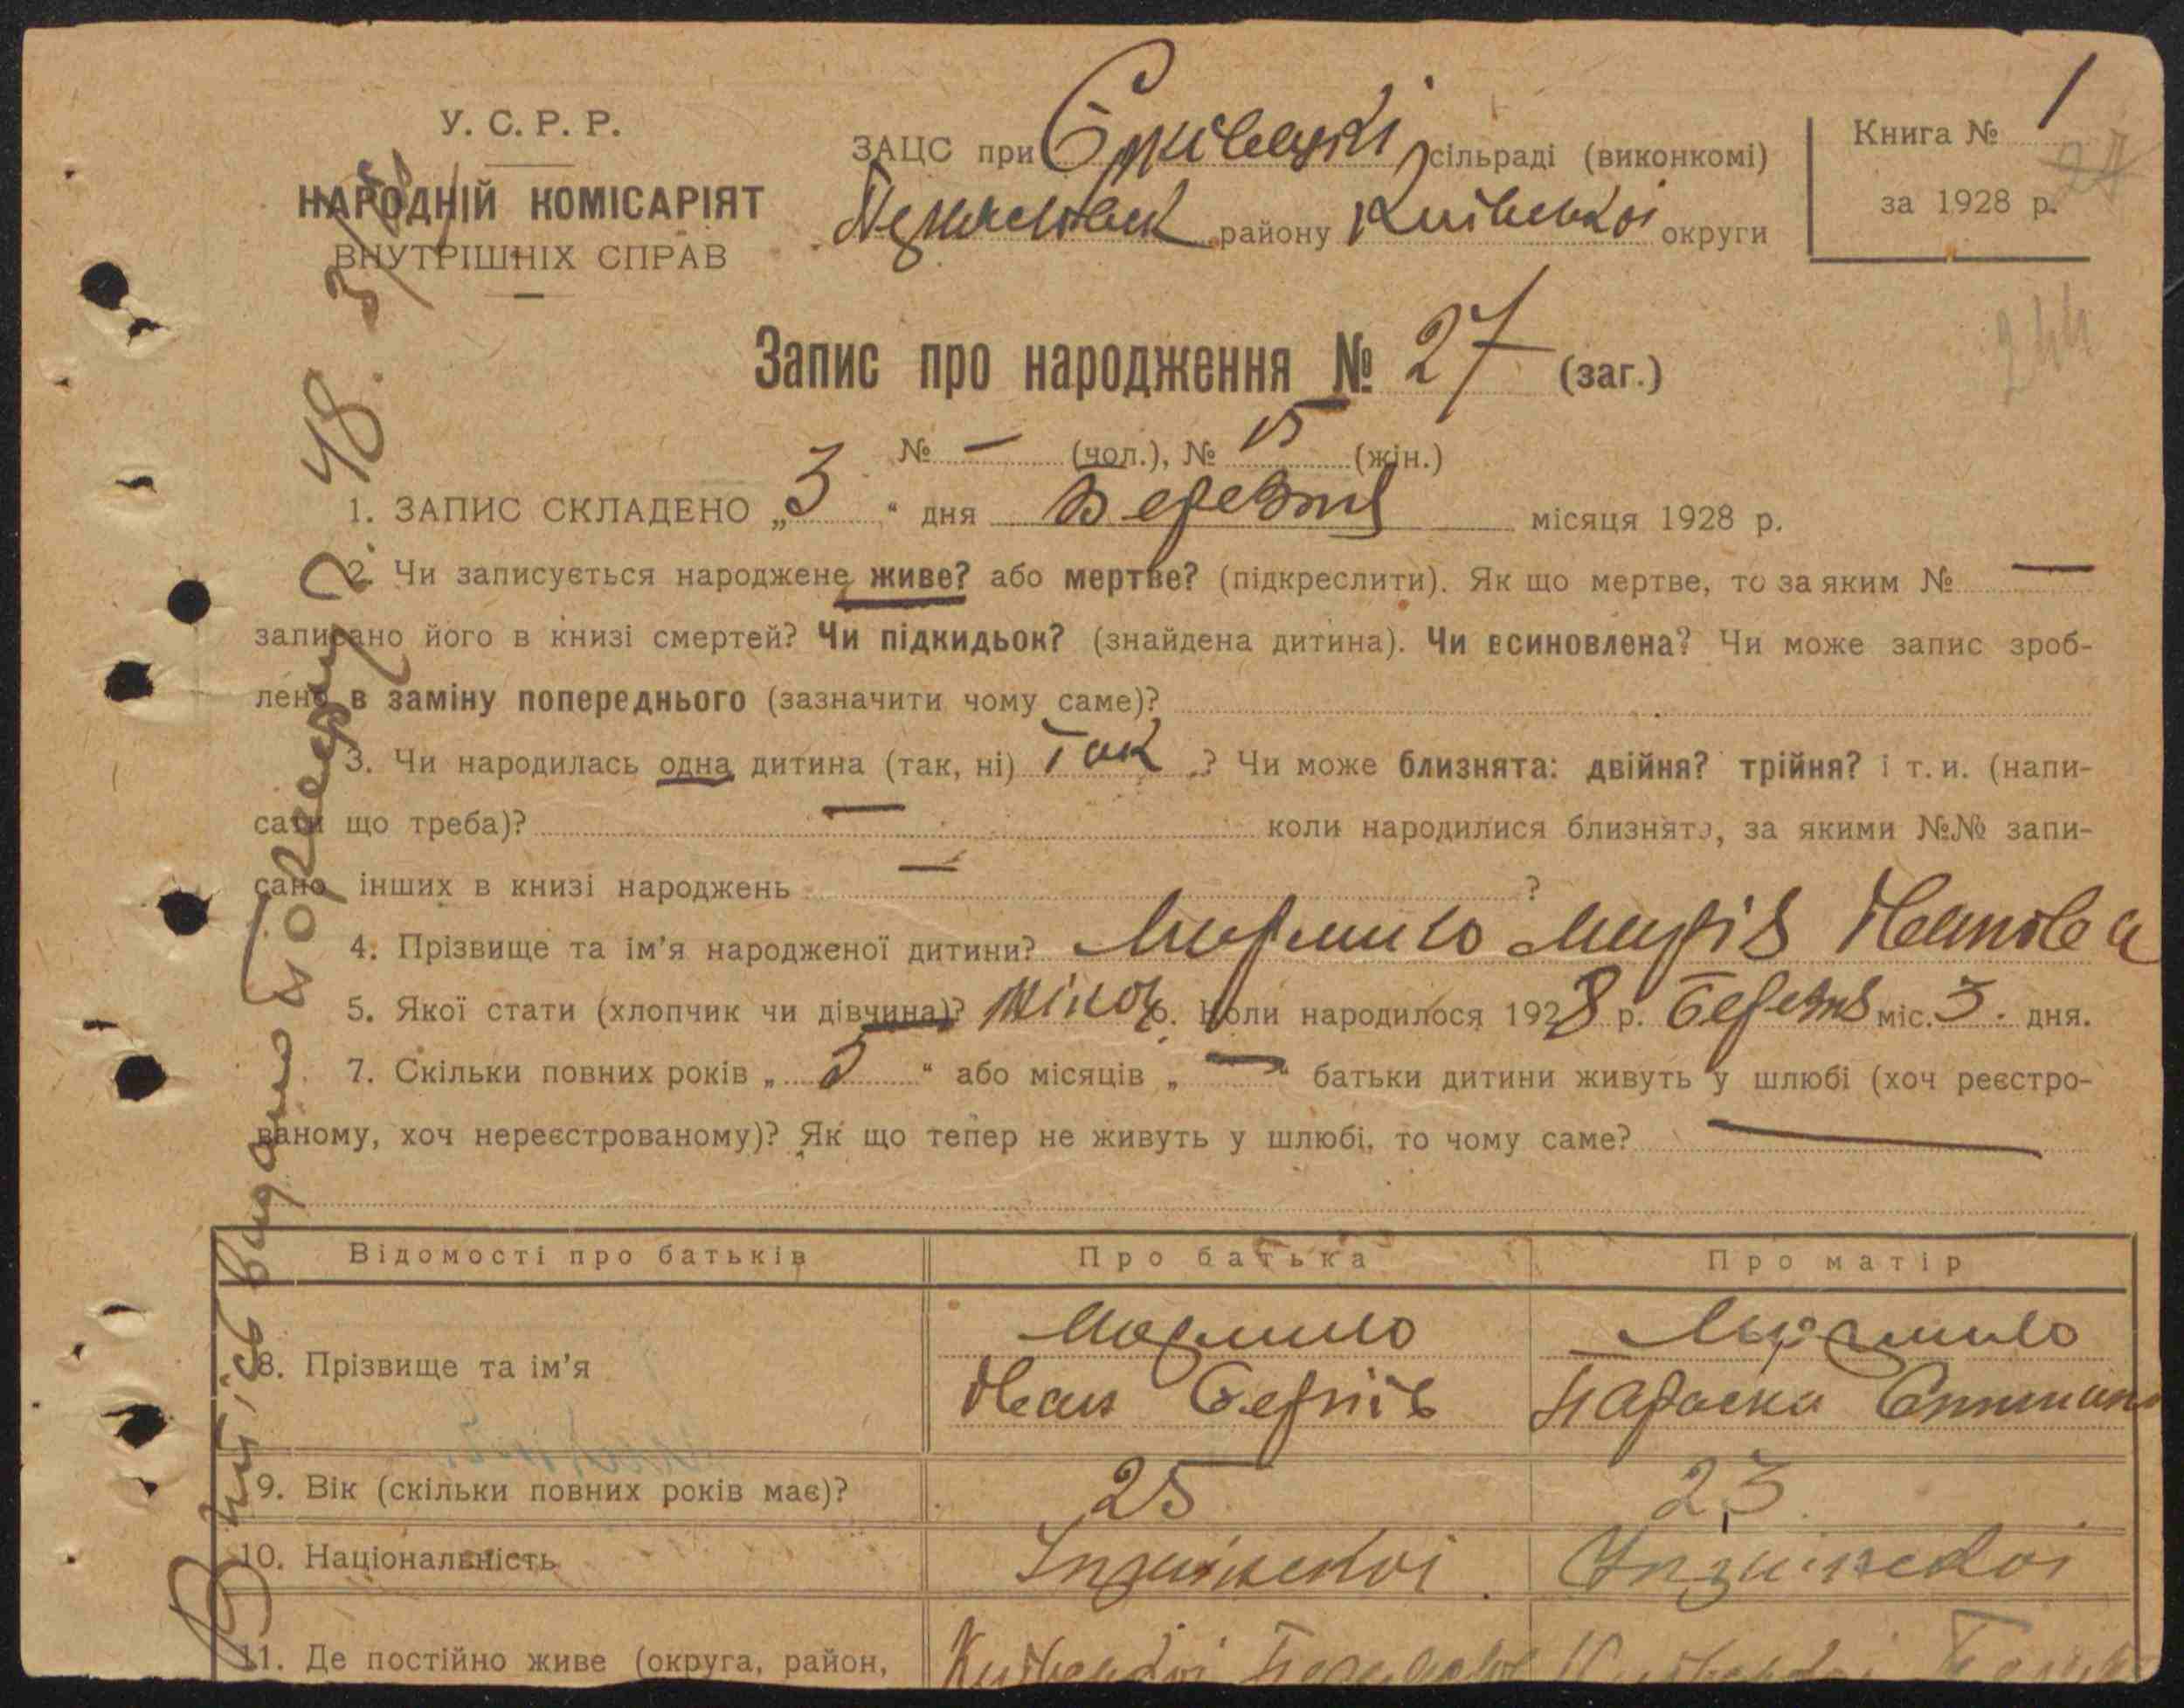 У. С. Р. Р.
НАРОДНІЙ КОМІСАРІЯТ
ВНУТРІШНІХ СПРАВ
ЗАЦС при сільраді (виконкомі)
району Київської округи
Книга № 1
за 1928 р.
Запис про народження № 27 (заг.)
№ — (чол.), № 15 (жін.)
1. ЗАПИС СКЛАДЕНО „3“ дня Березня місяця 1928 р.
2. Чи записується народжене живе? або мертве? (підкреслити). Як що мертве, то за яким № —
записано його в книзі смертей? Чи підкидьок? (знайдена дитина). Чи всиновлена? Чи може запис зроб-
лено в заміну попереднього (зазначити чому саме)?
3. Чи народилась одна дитина (так, ні) Так ? Чи може близнята: двійня? трійня? і т. и. (напи-
сати що треба)? — коли народилися близнята, за якими №№ запи-
сано інших в книзі народжень — ?
4. Прізвище та ім’я народженої дитини? Марія Іванова
5. Якої стати (хлопчик чи дівчина)? жіноч. 6. Коли народилося 1928 р. Березня міс. 3. дня.
7. Скільки повних років „5“ або місяців „—“ батьки дитини живуть у шлюбі (хоч реєстро-
ваному, хоч нереєстрованому)? Як що тепер не живуть у шлюбі, то чому саме? —
Відомості про батьків Про батька Про матір
8. Прізвище та ім’я
Іван Параска
9. Вік (скільки повних років має)? 25 23
10. Національність
11. Де постійно живе (округа, район, Київської Київської
Витісь видано
48